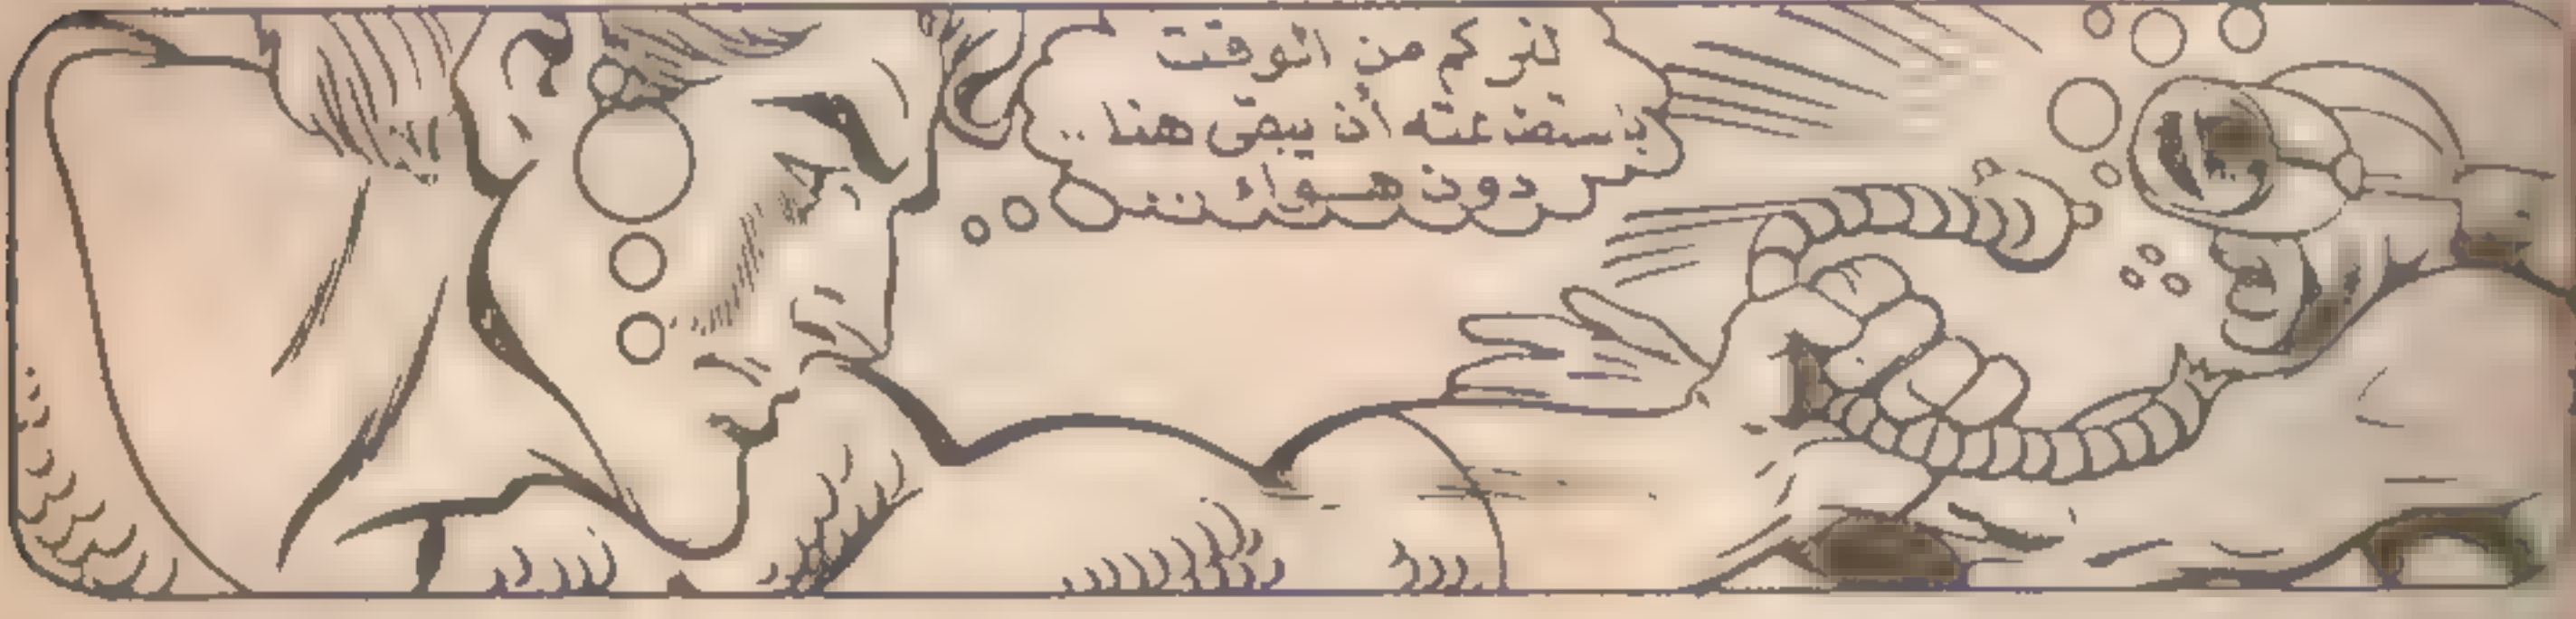 لنر كم من الوقت
باستطاعته أن يبقى هنا ..
دون هــواء ....